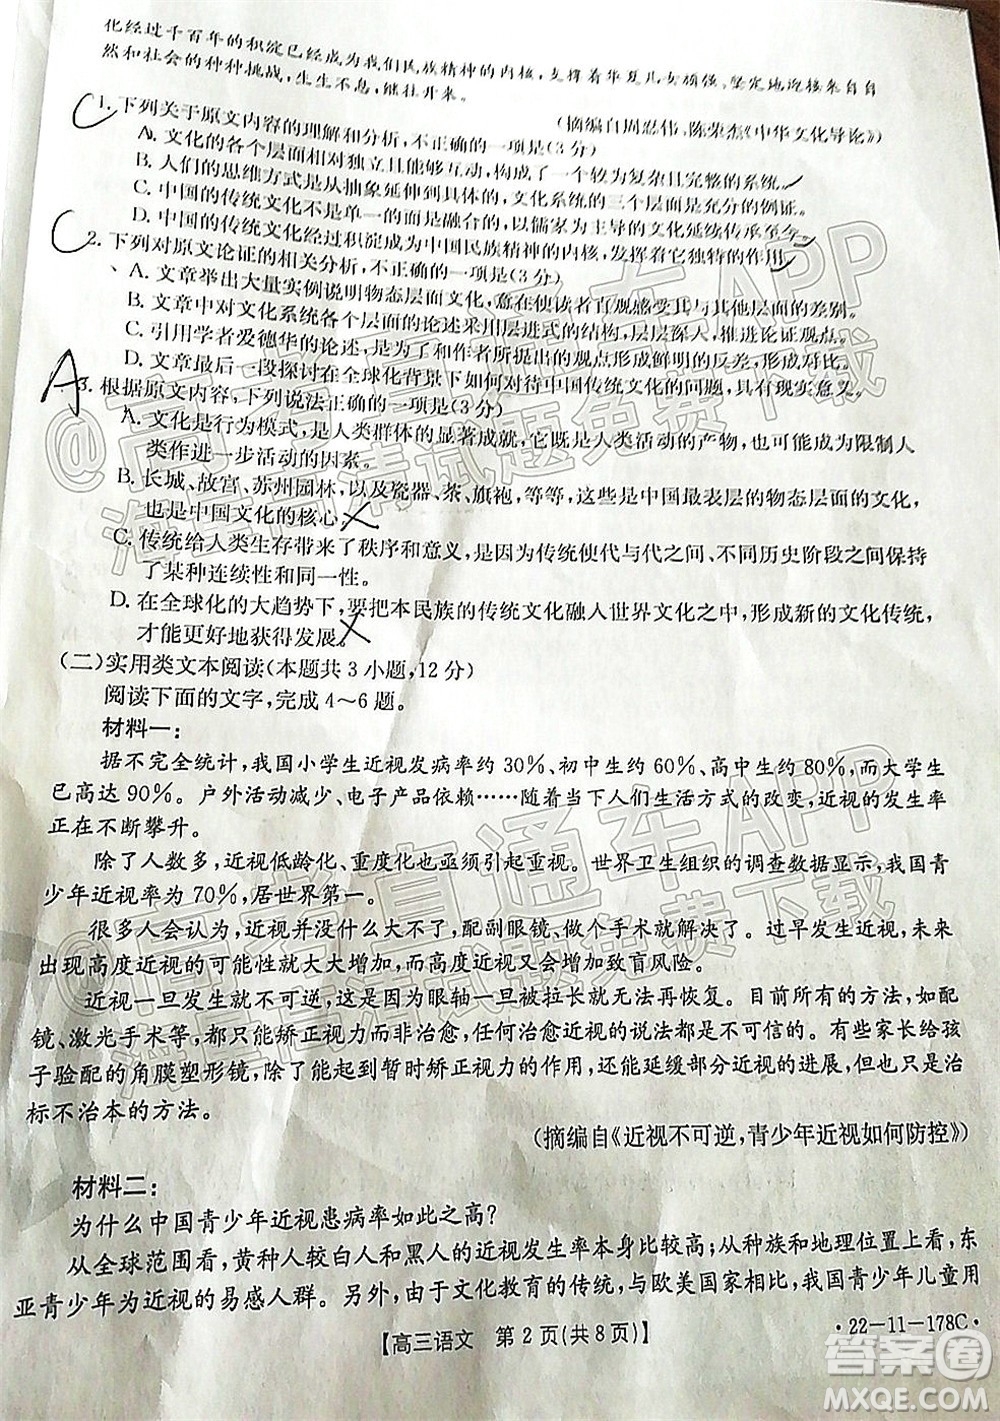 化经过千百年的积淀已经成为我们民族精神的内核，支撑着华夏儿女顽强、坚定地迎接来自自
然和社会的种种挑战，生生不息，继往开来。
（摘编自周忍伟、陈荣杰《中华文化导论》）
C 1. 下列关于原文内容的理解和分析，不正确的一项是（3 分）
A. 文化的各个层面相对独立且能够互动，构成了一个较为复杂且完整的系统。
B. 人们的思维方式是从抽象延伸到具体的，文化系统的三个层面是充分的例证。
C. 中国的传统文化不是单一的而是融合的，以儒家为主导的文化延续传承至今。
D. 中国的传统文化经过积淀成为中国民族精神的内核，发挥着它独特的作用。
C 2. 下列对原文论证的相关分析，不正确的一项是（3 分）
A. 文章举出大量实例说明物态层面文化，意在使读者直观感受其与其他层面的差别。
B. 文章中对文化系统各个层面的论述采用层进式的结构，层层深入，推进论证观点。
C. 引用学者爱德华的论述，是为了与前面提出的观点形成鲜明的反差，形成对比。
D. 文章最后一段探讨在全球化背景下如何对待中国传统文化的问题，具有现实意义。
A 3. 根据原文内容，下列说法正确的一项是（3 分）
A. 文化是行为模式，是人类群体的显著成就，它既是人类活动的产物，也可能成为限制人
类作进一步活动的因素。
B. 长城、故宫、苏州园林，以及瓷器、茶、旗袍，等等，这些是中国最表层的物态层面文化，
也是中国文化的核心。
C. 传统给人类生存带来了秩序和意义，传统使代与代之间、不同历史阶段之间保持
了某种连续性和同一性。
D. 在全球化的大趋势下，要把本民族的传统文化融入世界文化之中，形成新的文化传统，
才能更好地获得发展。
（二）实用类文本阅读（本题共 3 小题，12 分）
阅读下面的文字，完成 4～6 题。
材料一：
据不完全统计，我国小学生近视发病率约 30%、初中生约 60%、高中生约 80%，而大学生
已高达 90%。户外活动减少、电子产品依赖……随着当下人们生活方式的改变，近视的发生率
正在不断攀升。
除了人数多，近视低龄化、重度化也亟须引起重视。世界卫生组织的调查数据显示，我国青
少年近视率为 70%，居世界第一。
很多人会认为，近视并没有什么大不了，配副眼镜、做个手术就解决了。过早发生近视，未来
出现高度近视的可能性就大大增加，而高度近视又会增加致盲风险。
近视一旦发生就不可逆，这是因为眼轴一旦被拉长就无法再恢复。目前所有的方法，如配
镜、激光手术等，都只能矫正视力而非治愈，任何治愈近视的说法都是不可信的。有些家长给孩
子验配的角膜塑形镜，除了能起到暂时矫正视力的作用，还能延缓部分近视的进展，但仍是治
标不治本的方法。
（摘编自《近视不可逆，青少年近视如何防控》）
材料二：
为什么中国青少年近视患病率如此之高？
从全球范围看，黄种人较白人和黑人的近视发生率本身比较高；从种族和地理位置上看，东
亚青少年为近视的易感人群。另外，由于文化教育的传统，与欧美国家相比，我国青少年儿童用
【高三语文 第 2 页（共 8 页）】
·22-11-178C·
@高考直通车APP
海量高清试题免费下载
@高考直通车APP
海量高清试题免费下载
答案圈
MXQE.COM